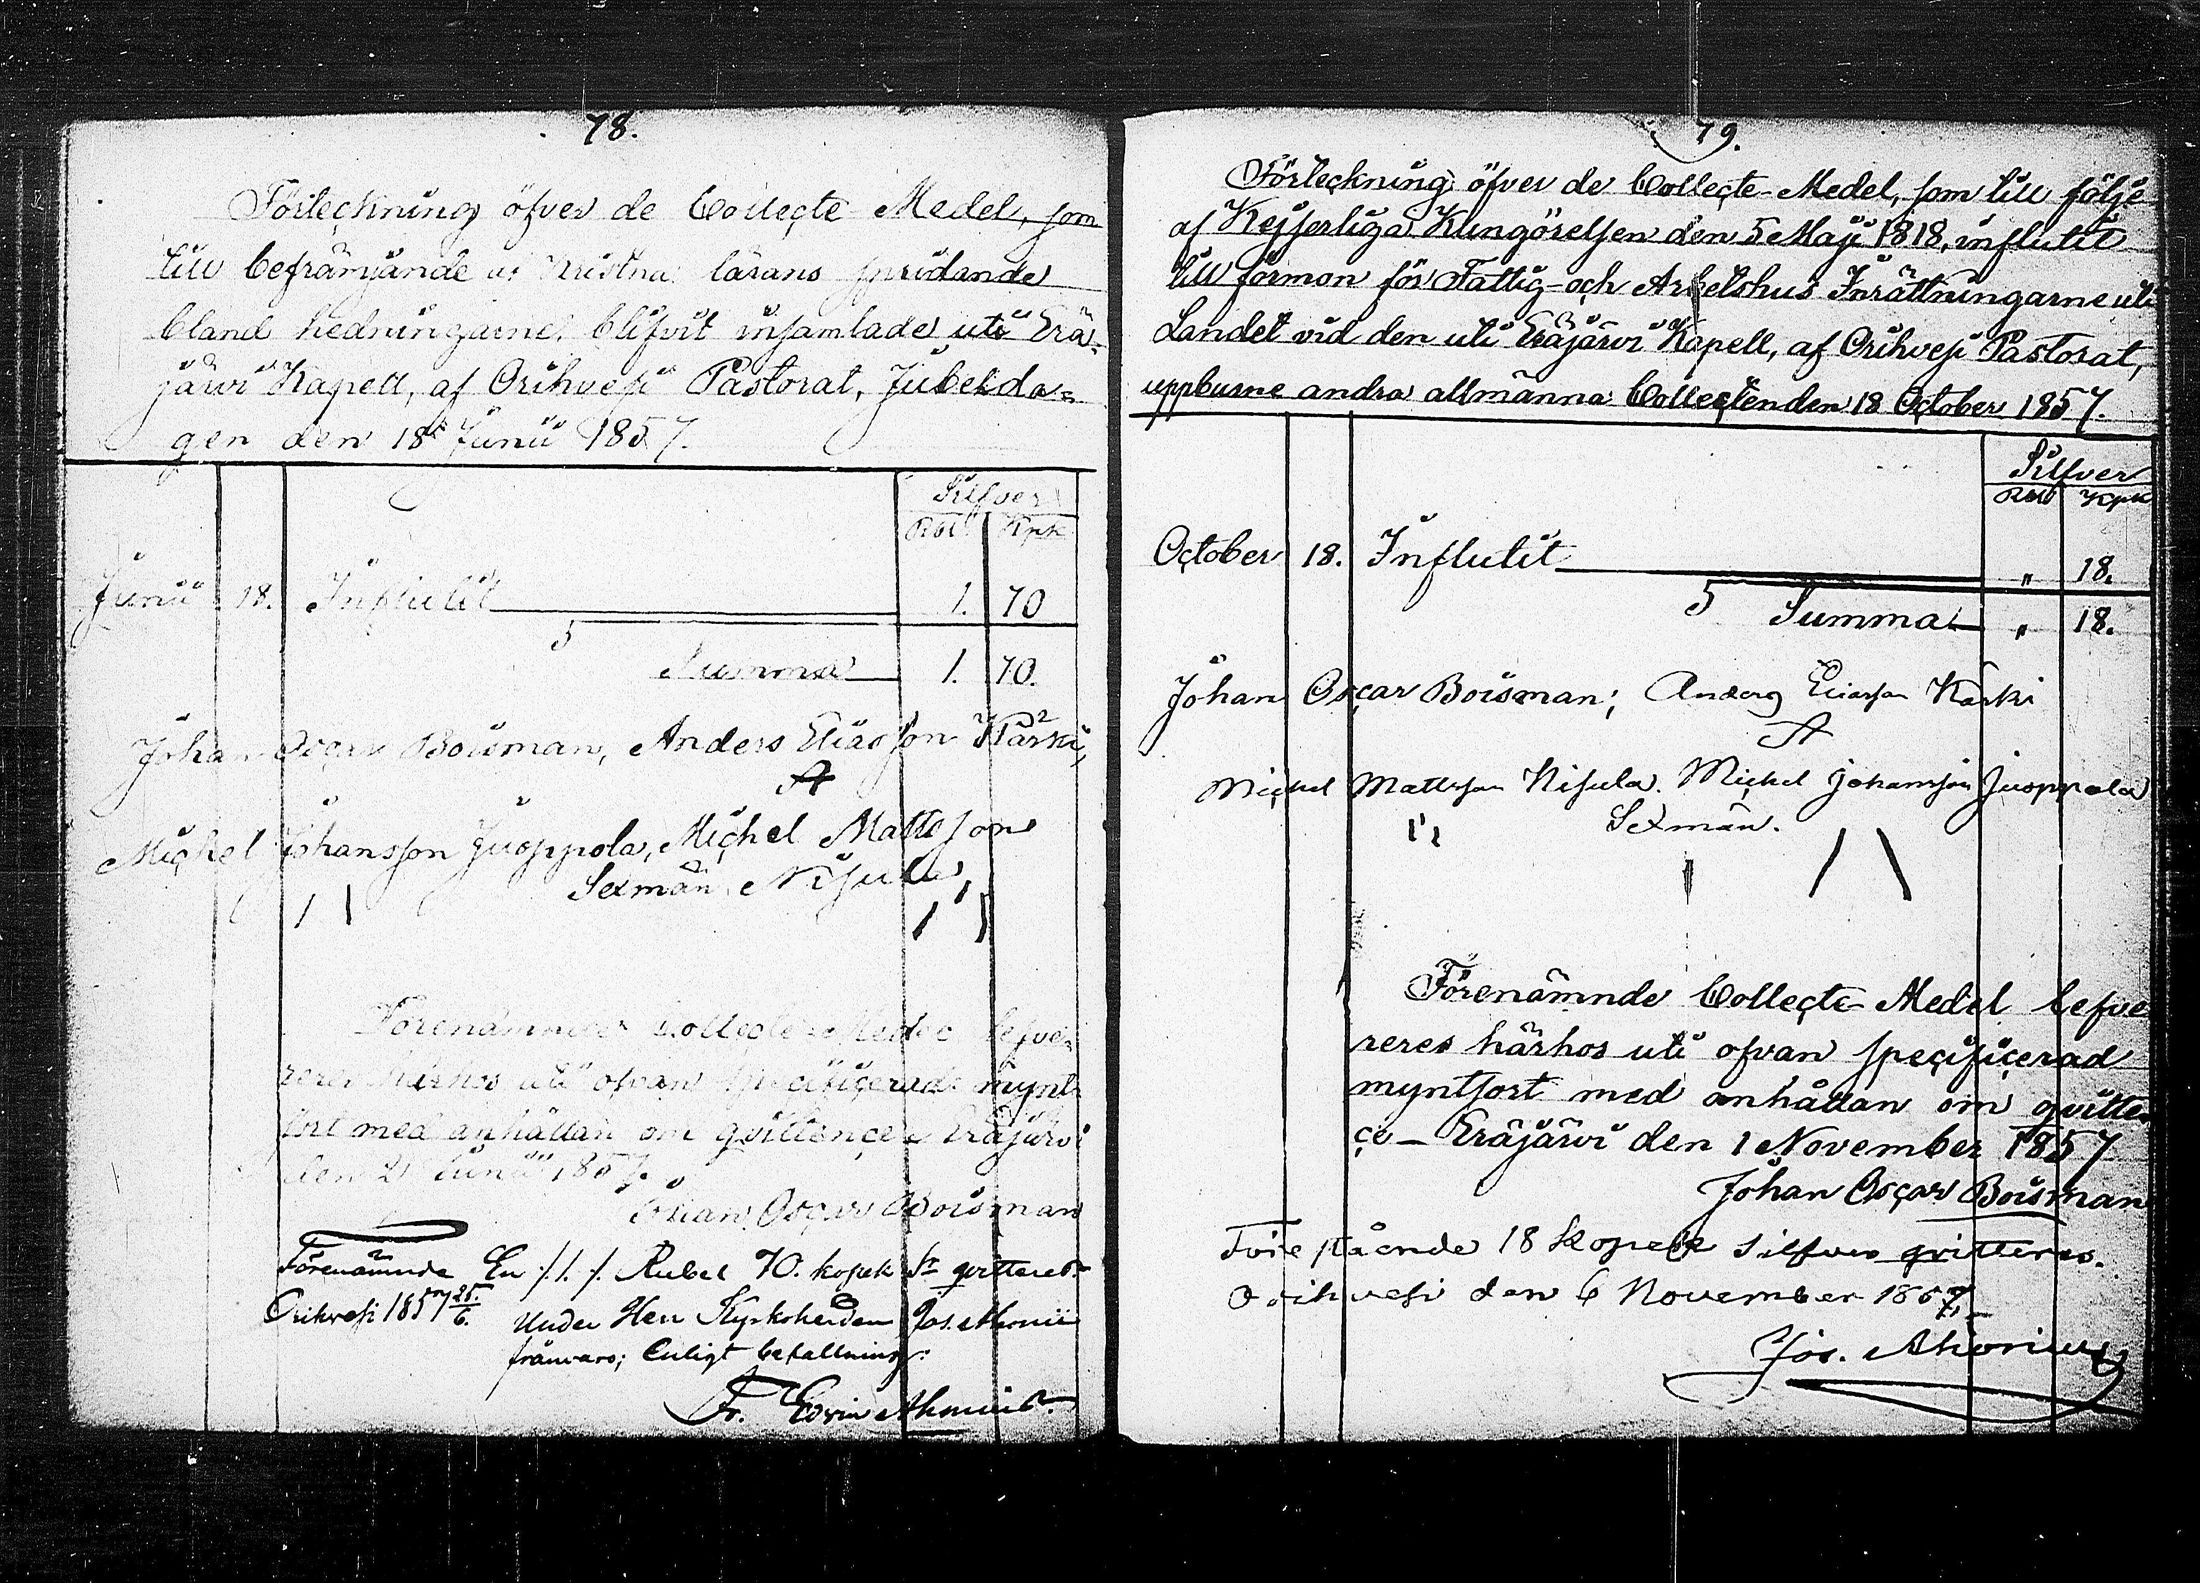 78.
Förteckning öfver de Collecte Medel, som
till befrämjande af Kristna lärans spridande
bland hedningarne, blifvit insamlade uti Erä-
järvi Kapell, af Orihvesi Pastorat, Jubelda-
gen den 18 Junii 1857.
Silfver
Rbl Kpk
Junii 18. Influtit 1. 70
Summa 1. 70.
Johan Oscar Boisman, Anders Eliasson Kärki,
Michel Johansson Juoppola, Michel Mattsson
Sexmän Nisula,
Förenämnde Collecte Medel lefve-
reres härhos uti ofvan specificerad mynt-
sort med anhållan om qvittence Eräjärvi
den 21 Junii 1857.
Johan Oscar Boisman
Förenämnde En /.1./. Rubel 70. kopek Sr qvitteras.
Orihvesi 1857 25/6. Under Herr Kyrkoherden Jos.
frånvaro; Enligt befallning:
Fr. Edvin
79.
Förteckning öfver de Collecte-Medel, som till följe
af Kejserliga Kungörelsen den 5 Maji 1818, influtit
till förmon för Fattig- och Arbetshus Inrättningarne uti
Landet vid den uti Eräjärvi Kapell, af Orihvesi Pastorat,
uppburne andra allmänna Collecten den 18 October 1857.
Silfver
Rbl Kpk
October 18. Influtit " 18.
Summa " 18.
Johan Oscar Boisman; Anders Eliasson Kärki
Michel Mattsson Nisula. Michel Johansson Juoppola
Sexmän.
Förenämnde Collecte Medel lefve
reres härhos uti ofvan specificerad
myntsort med anhållan om qvitten
ce – Eräjärvi den 1 November 1857
Johan Oscar Boisman
Förestående 18 kopek silfver qvitteras.
Orihvesi den 6 November 1857,
Jos. Ahonius